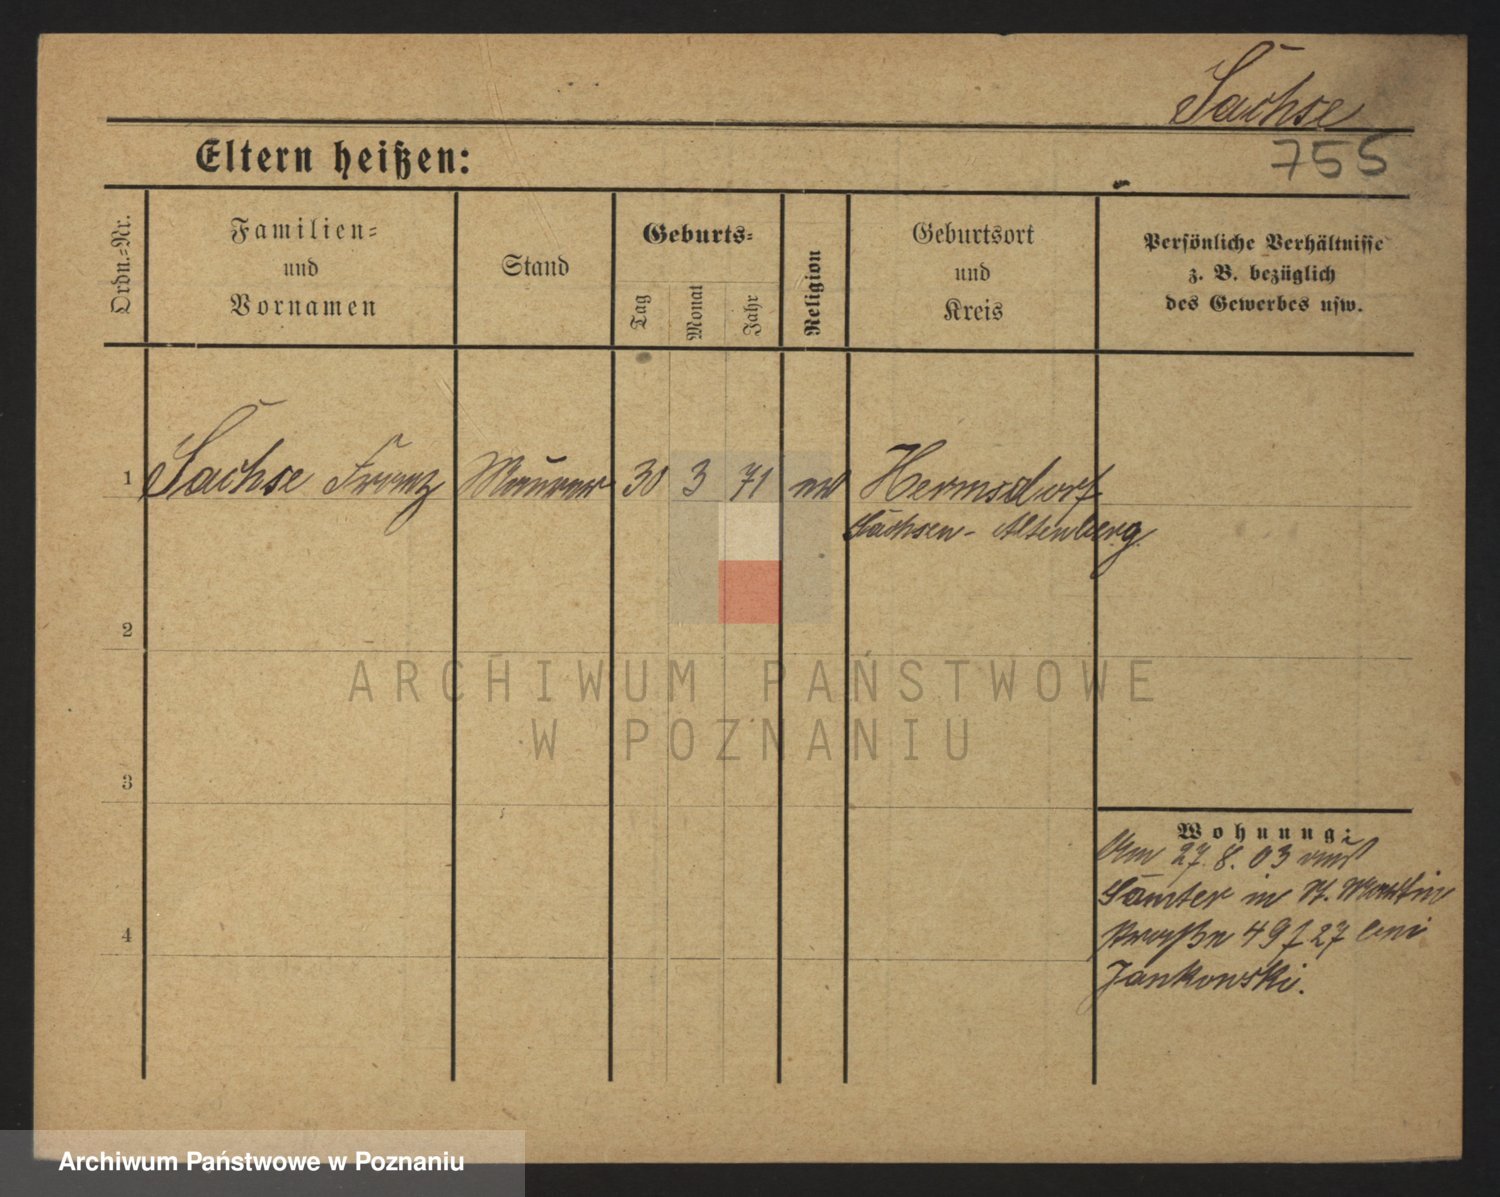 Sachse
Eltern heißen:
755
Ordn.-Nr.
Familien-
und
Vornamen
Stand
Geburts-
Tag
Monat
Jahr
Religion
Geburtsort
und
Kreis
Persönliche Verhältnisse
z. B. bezüglich
des Gewerbes usw.
1 Sachse Franz Maurer 30 3 71 ev Hermsdorf
Sachsen-Altenberg
2
3
4
Wohnung:
Am 27.8.03 aus
Samter in St. Martin
straße 49 f 27 bei
Jankowski.
ARCHIWUM PAŃSTWOWE
W POZNANIU
Archiwum Państwowe w Poznaniu